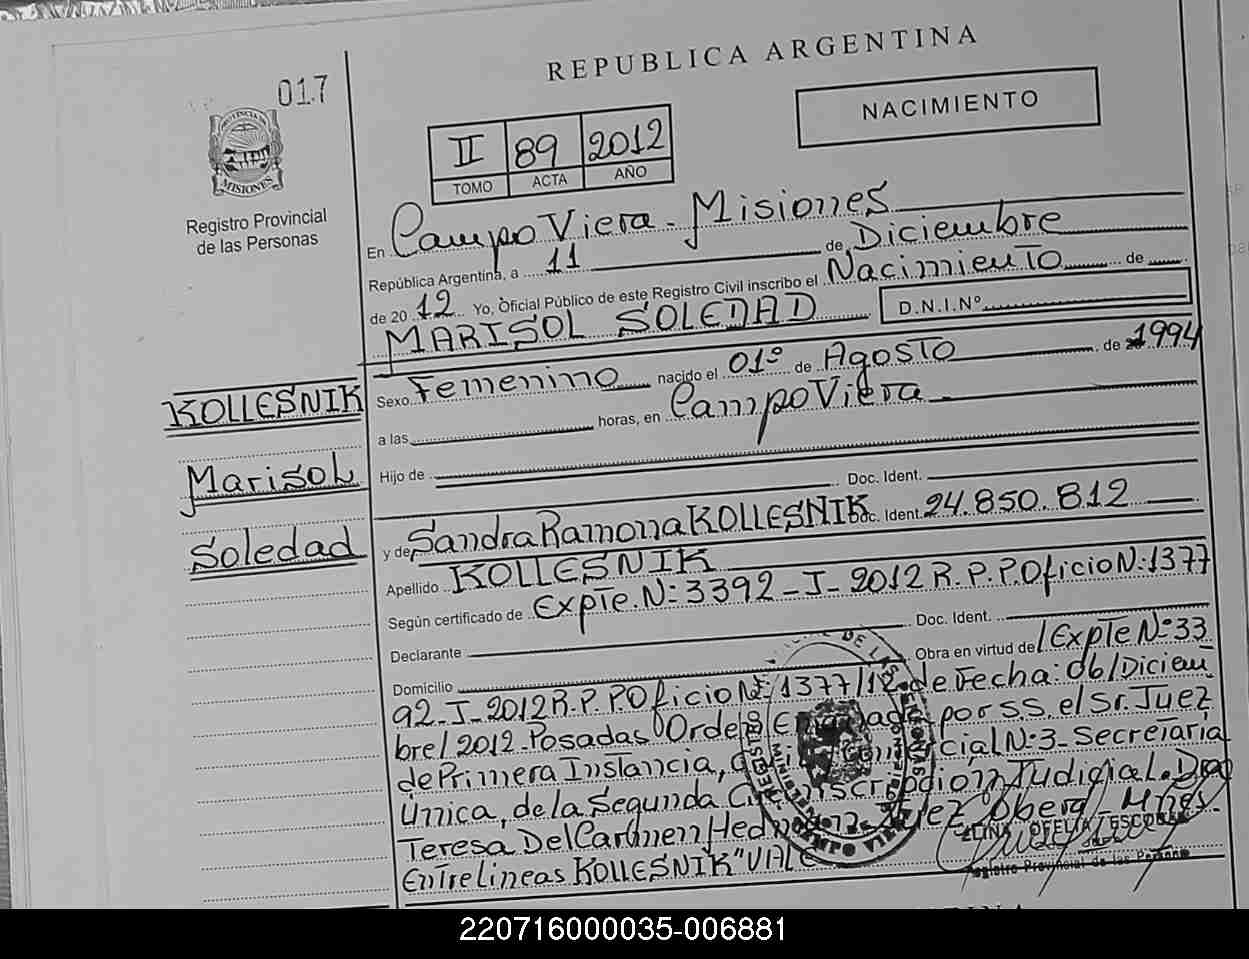 REPUBLICA ARGENTINA
017
NACIMIENTO
II 89 2012
TOMO ACTA AÑO
PROVINCIA DE MISIONES
Registro Provincial
de las Personas
En Campo Viera - Misiones
República Argentina, a 11 de Diciembre
de 2012 Yo, Oficial Público de este Registro Civil inscribo el Nacimiento de
MARISOL SOLEDAD D.N.I.Nº
KOLLESNIK
Sexo Femenino nacido el 01º de Agosto de 1994
a las horas, en Campo Viera
Marisol
Hijo de
Doc. Ident.
Soledad
y de Sandra Ramona KOLLESNIK Doc. Ident. 24.850.812
Apellido KOLLESNIK
Según certificado de Expte. Nº: 3392-J-2012 R.P.P. Oficio Nº: 1377
Declarante Doc. Ident.
Domicilio Obra en virtud de/Expte Nº 33
92-J-2012 R.P.P. Oficio Nº: 1377/12 de Fecha: 06/Diciem
bre/2012-Posadas Orden por SS. el Sr. Juez
de Primera Instancia, Nº3-Secretaria
Única, de la Segunda Judicial. Dra
Teresa Del Carmen Oberá - Mnes.
Entrelineas KOLLESNIK "VALE
Registro Provincial de las Personas
220716000035-006881